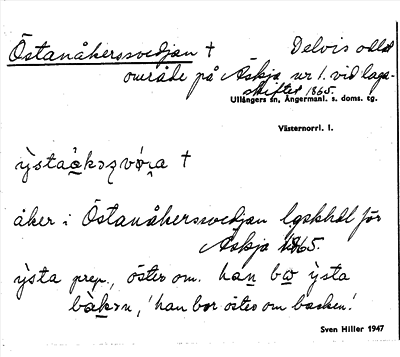 Östanåkerssvedjan † Delvis odlat
område på Äskja nr 1. vid laga-
skiftet 1865.
Ullångers sn, Ångermanl. s. doms. tg.
Västernorrl. l.
åker i Östanåkerssvedjan lgskhdl för
Äskja 1865.
ysta prep., öster om. han bω ỳsta
'han bor öster om backen.'
Sven Hiller 1947